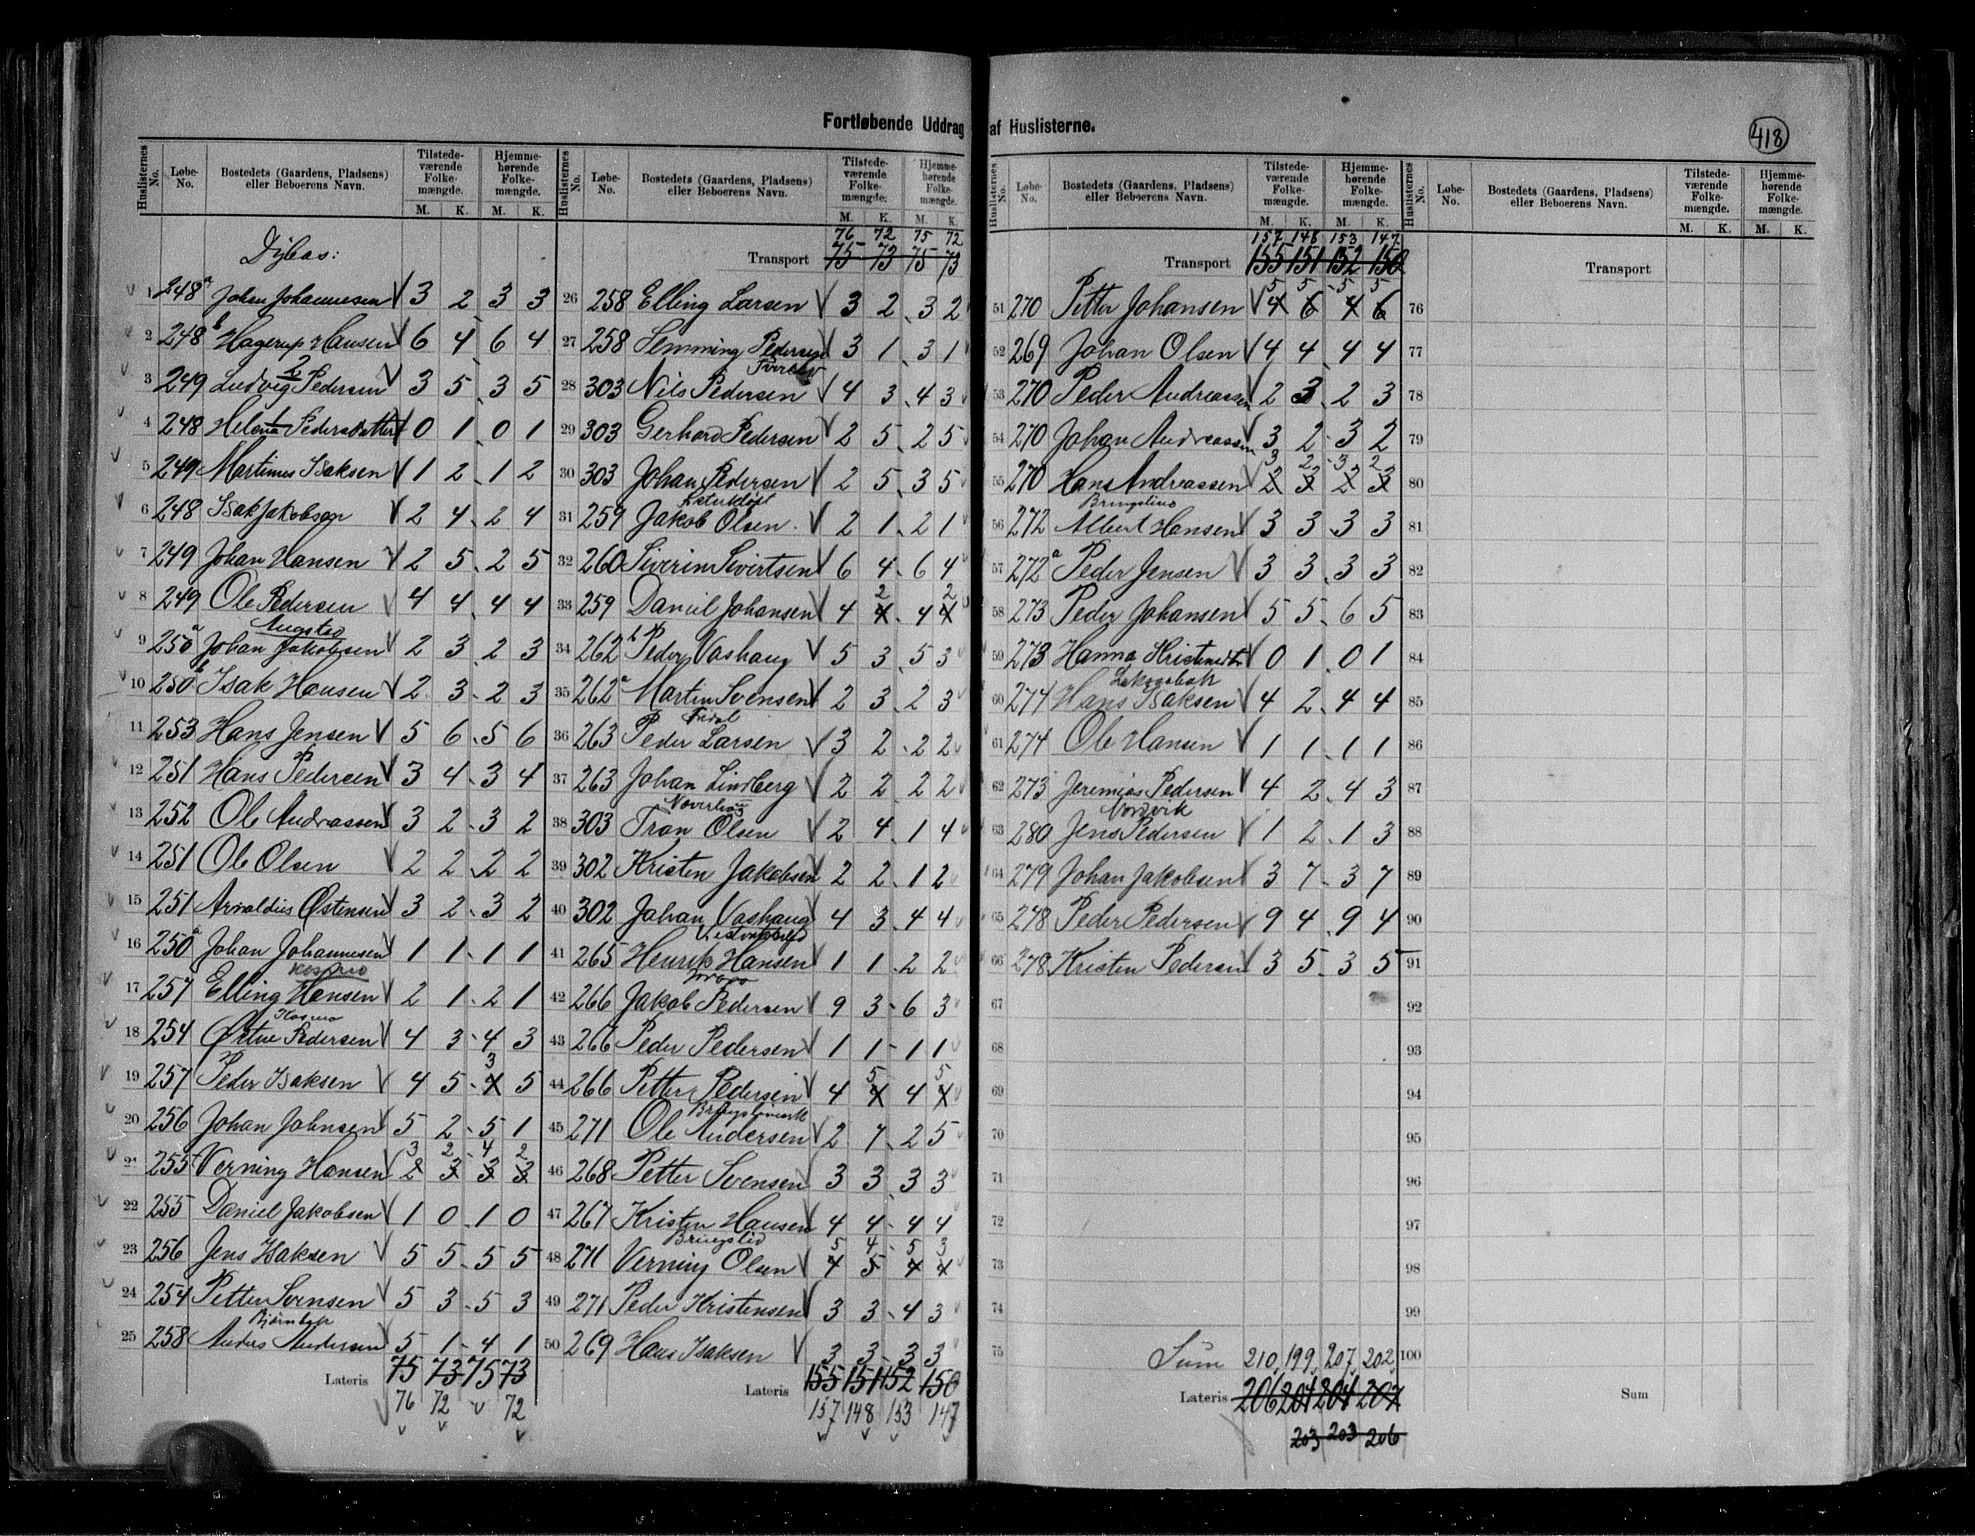 Fortløbende Uddrag af Huslisterne.
418
Huslisternes No. Løbe-No. Bostedets (Gaardens, Pladsens) eller Beboerens Navn. Tilstede-værende Folke-mængde. M. K. Hjemme-hørende Folke-mængde. M. K.
1 248 a Johan Johannesen 3 2 3 3
2 248 b Hagerup Hansen 6 4 6 4
3 249 Ludvig Pedersen 3 5 3 5
4 248 Helena Pedersdatter 0 1 0 1
5 249 Martinus Isaksen 1 2 1 2
6 248 Isak Jakobsen 2 4 2 4
7 249 Johan Hansen 2 5 2 5
8 249 Ole Pedersen 4 4 4 4
Augsted
9 250 a Johan Jakobsen 2 3 2 3
10 250 b Isak Hansen 2 3 2 3
11 253 Hans Jensen 5 6 5 6
12 251 Hans Pedersen 3 4 3 4
13 252 Ole Andreassen 3 2 3 2
14 251 Ole Olsen 2 2 2 2
15 251 Arnoldus Østensen 3 2 3 2
16 250 a Johan Johannesen 1 1 1 1
Kosmo
17 257 Elling Hansen 2 1 2 1
Kosmo
18 254 Pedersen 4 3 4 3
19 257 Peder Isaksen 4 5 4 3 5
20 256 Johan Johnsen 5 2 5 1
3 2 4 2
21 255 Verning Hansen 2 3 3 3
22 255 Daniel Jakobsen 1 0 1 0
23 256 Jens Isaksen 5 5 5 5
24 254 Petter Svensen 5 3 5 3
25 258 Anders Andersen 5 1 4 1
Lateris 75 73 75 73
76 72 72
Huslisternes No. Løbe-No. Bostedets (Gaardens, Pladsens) eller Beboerens Navn. Tilstede-værende Folke-mængde. M. K. Hjemme-hørende Folke-mængde. M. K.
76 72 75 72
Transport 75 73 75 73
26 258 Elling Larsen 3 2 3 2
27 258 Lemming Pedersen 3 1 3 1
28 303 Nils Pedersen 4 3 4 3
29 303 Gerhard Pedersen 2 5 2 5
30 303 Johan Pedersen 2 5 3 5
31 259 Jakob Olsen 2 1 2 1
32 260 Siverin Sivertsen 6 4 6 4
2 2
33 259 Daniel Johansen 4 4 4 4
34 262 b Peder Vashaug 5 3 5 3
35 262 a Martin Svensen 2 3 2 3
36 263 Peder Larsen 3 2 2 2
37 263 Johan Lindberg 2 2 2 2
38 303 Tron Olsen 2 4 1 4
39 302 Kristen Jakobsen 2 2 1 2
40 302 Johan Vashaug 4 3 4 4
41 265 Henrik Hansen 1 1 2 2
42 266 Jakob Pedersen 9 3 6 3
43 266 Peder Pedersen 1 1 1 1
5 5
44 266 Petter Pedersen 4 4 4 4
45 271 Ole Andersen 2 7 2 5
46 268 Petter Svensen 3 3 3 3
47 267 Kristen Hansen 4 4 4 4
Bringslid
5 4 5 3
48 271 Verning Olsen 4 5 4 4
49 271 Peder Kristensen 3 3 4 3
50 269 Hans Isaksen 3 3 3 3
Lateris 155 151 152 150
157 148 153 147
Huslisternes No. Løbe-No. Bostedets (Gaardens, Pladsens) eller Beboerens Navn. Tilstede-værende Folke-mængde. M. K. Hjemme-hørende Folke-mængde. M. K.
157 148 153 147
Transport 155 151 152 150
5 5 5 5
51 270 Petter Johansen 4 6 4 6
52 269 Johan Olsen 4 4 4 4
53 270 Peder Andreassen 2 3 2 3
54 270 Johan Andreassen 3 2 3 2
3 2 3 2
55 270 Hans Andreassen 2 3 2 3
56 272 Albert Hansen 3 3 3 3
57 272 a Peder Jensen 3 3 3 3
58 273 Peder Johansen 5 5 6 5
59 273 Hanna 0 1 0 1
60 274 Hans Isaksen 4 2 4 4
61 274 Ole Hansen 1 1 1 1
62 273 Jeremias Pedersen 4 2 4 3
Nordvik
63 280 Jens Pedersen 1 2 1 3
64 279 Johan Jakobsen 3 7 3 7
65 278 Peder Pedersen 9 4 9 4
66 278 Kristen Pedersen 3 5 3 5
67
68
69
70
71
72
73
74
75 Sum 210 199 207 202
Lateris 206 204 204 207
203 203 206
Huslisternes No. Løbe-No. Bostedets (Gaardens, Pladsens) eller Beboerens Navn. Tilstede-værende Folke-mængde. M. K. Hjemme-hørende Folke-mængde. M. K.
Transport
76
77
78
79
80
81
82
83
84
85
86
87
88
89
90
91
92
93
94
95
96
97
98
99
100
Sum